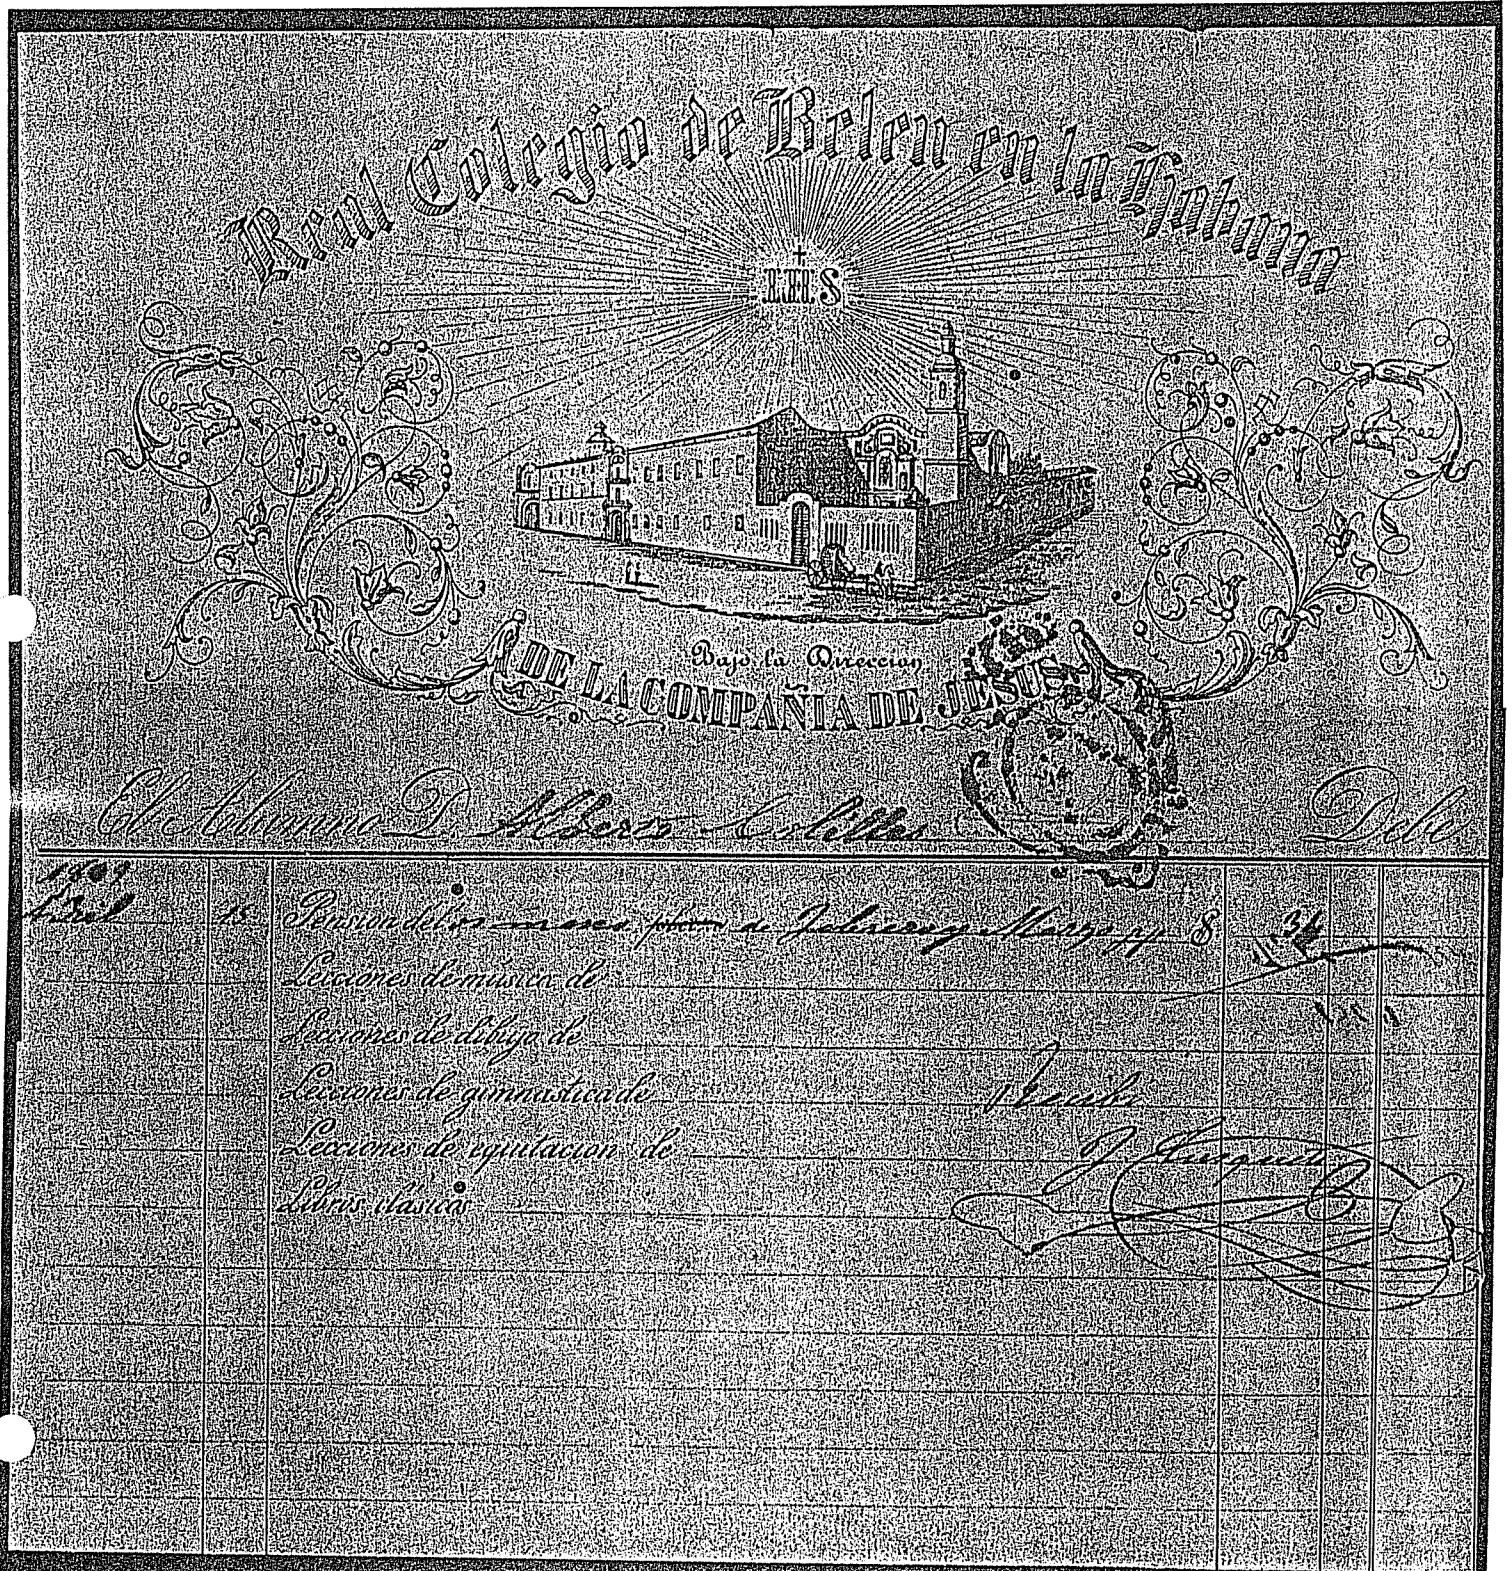 Real Colegio de Belen en la Habana
IHS
Bajo la Direccion
DE LA COMPAÑIA DE JESUS
El Alumno D. Alberto Debe
Abril 15 Pension de dos meses de Febrero y Marzo pp $ 34
Lecciones de música de
Lecciones de dibujo de
Lecciones de gimnastica de
Recibi
Lecciones de equitacion de
Libros clásicos